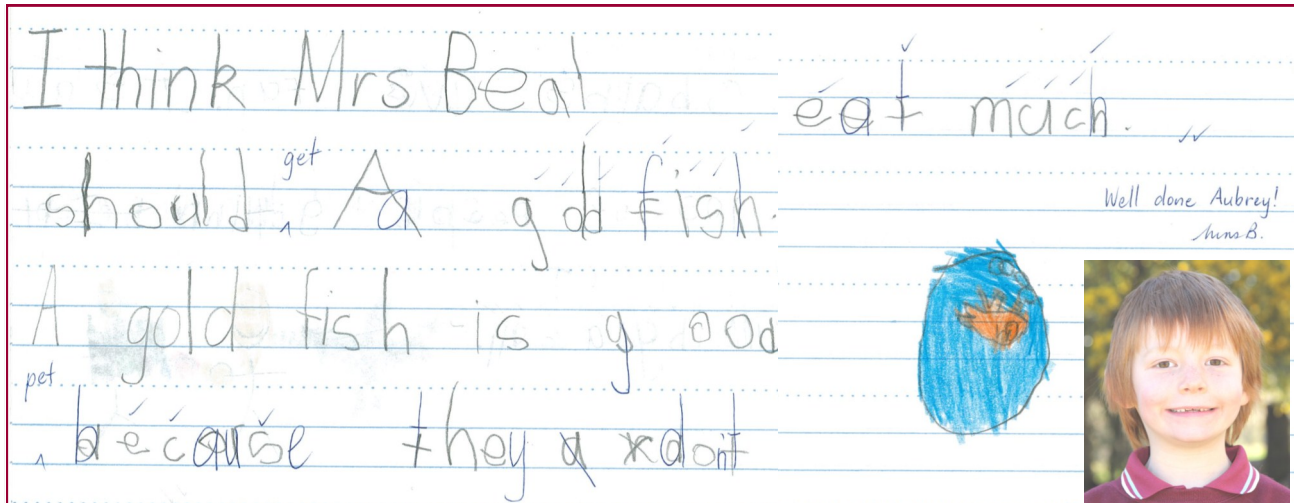 I think Mrs Beal
should get A a gold fish.
A gold fish is good
pet because they a x don't
eat much.
Well done Aubrey!